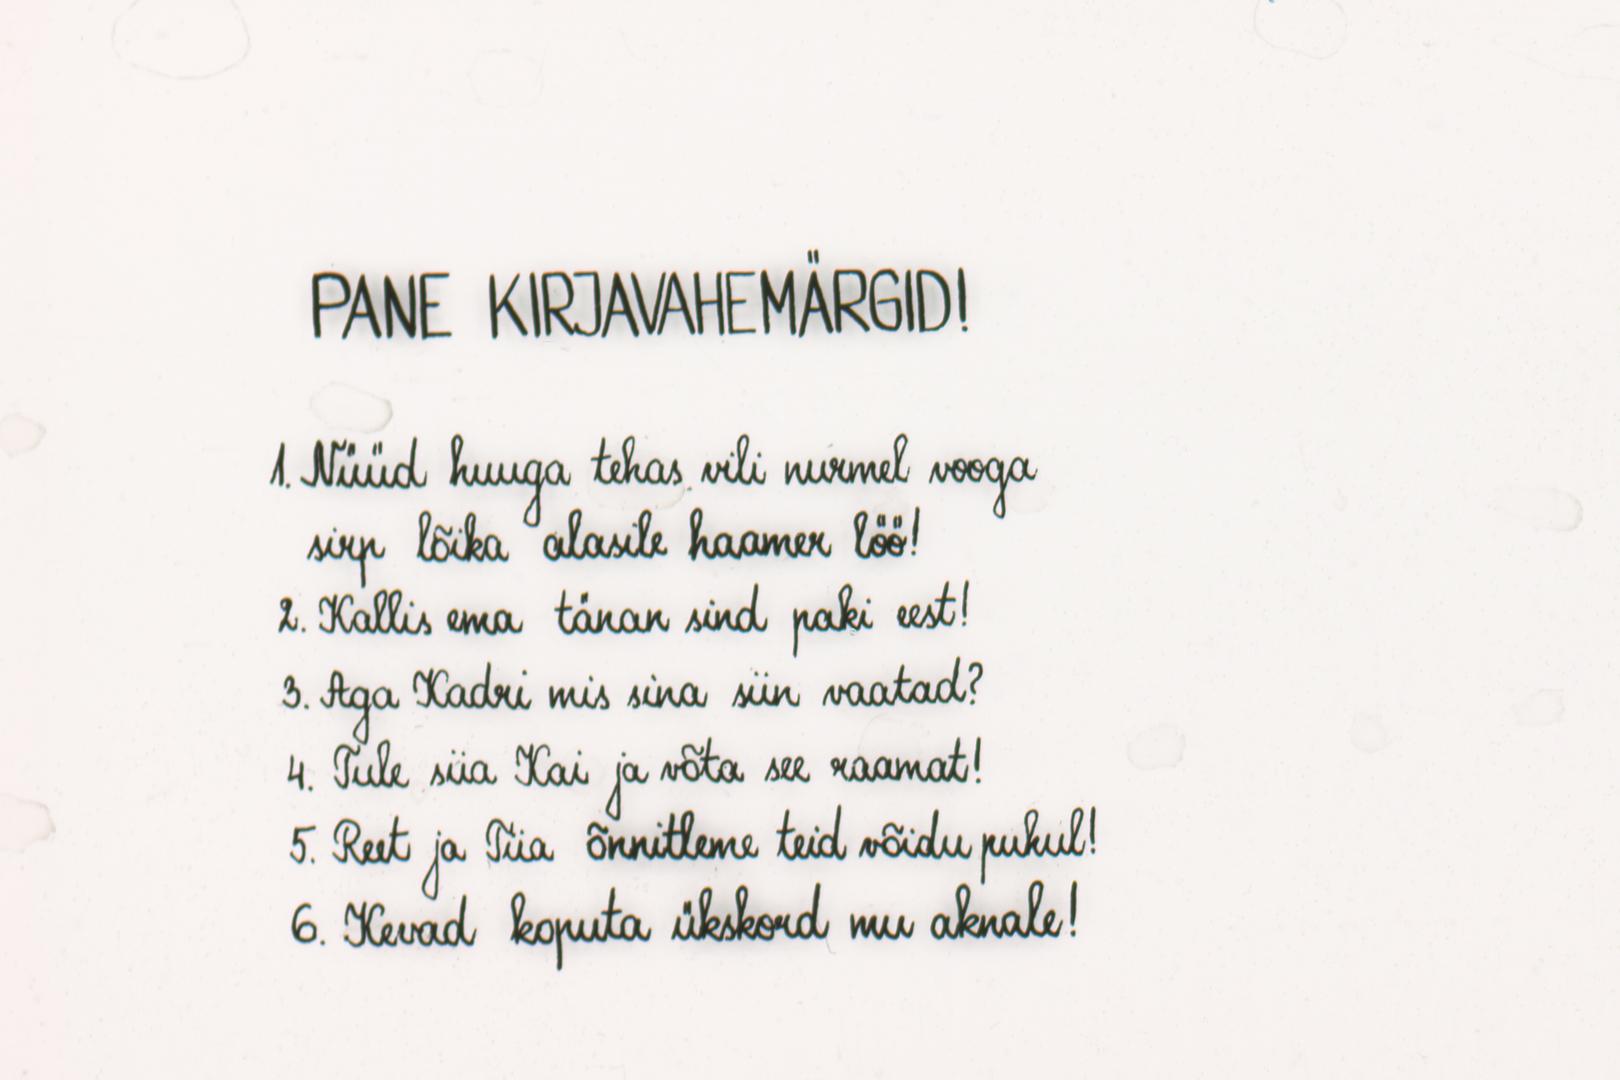 PANE KIRJAVAHEMÄRGID!
1. Nüüd huuga tehas vili nurmel vooga
sirp lõika alasile haamer löö!
2. Kallis ema tänan sind paki eest!
3. Aga Kadri mis sina siin vaatad?
4. Tule siia Kai ja võta see raamat!
5. Reet ja Tiia õnnitleme teid võidu puhul!
6. Kevad koputa ükskord mu aknale!